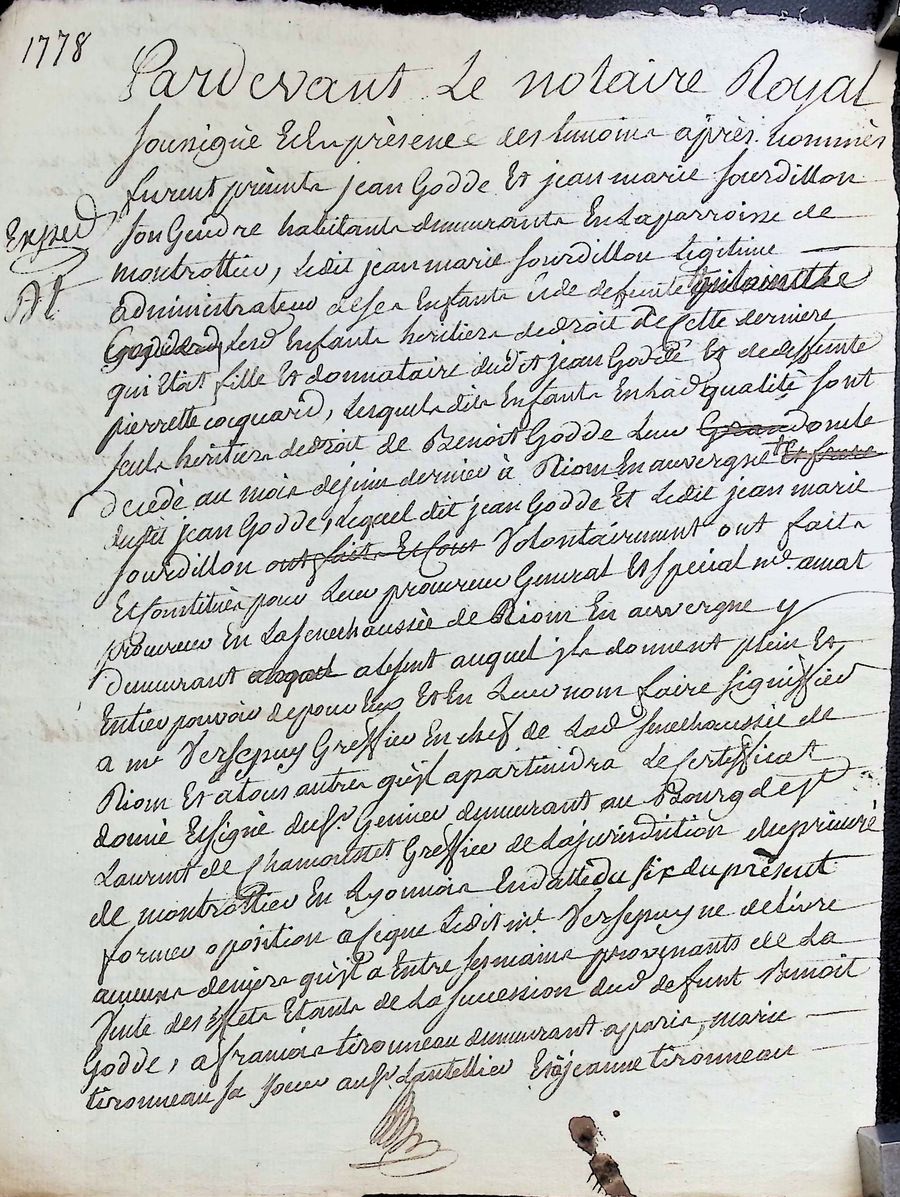 1778
Pardevant Le notaire Royal
soussigné Et En présence des temoins après nommés
furent présents jean Godde Et jean marie sourdillon
Exped
son Gendre habitants demeurants En La parroisse de
montrottier, Ledit jean marie sourdillon Legitime
administrateur de ses Enfants Et de defunte
Lesd Enfants heritiers de droit de Cette derniere
qui Etoit fille Et donnataire dudit jean Godde Et de deffunte
pierrette cocquard, Lesquels dits Enfants En Lad qualité sont
seuls heritiers de droit de Benoit Godde Leur Grand oncle
decedé au mois de juin dernier à Riom En auvergne Et frere
dudit jean Godde, Lequel dit jean Godde Et Ledit jean marie
sourdillon ont fait Et font Volontairement ont fait
Et Constitué pour Leur procureur General Et special mr. amat
procureur En La senechaussée de Riom En auvergne y
demeurant absent auquel ils donnent plein Et
Entier pouvoir de pour Eux Et En Leur nom faire signiffier
a mr Versepuy Greffier En chef de Lad senechaussée de
Riom Et a tous autres qu'il apartiendra Le Certifficat
donné Et signé du sr. Genier demeurant au Bourg de st
Laurent de Chamousset Greffier de La jurisdiction du prieuré
de montrottier En Lyonnois En datte du six du present
former oposition a ce que Ledit mr. Versepuy ne delivre
aucuns deniers qu'il a Entre ses mains provenants de La
Vente des Effets Etants de La succession dud defunt Benoit
Godde, a francois tironneau demeurant a paris, marie
tironneau sa soeur au sr. Lantellier Et à jeanne tironneau